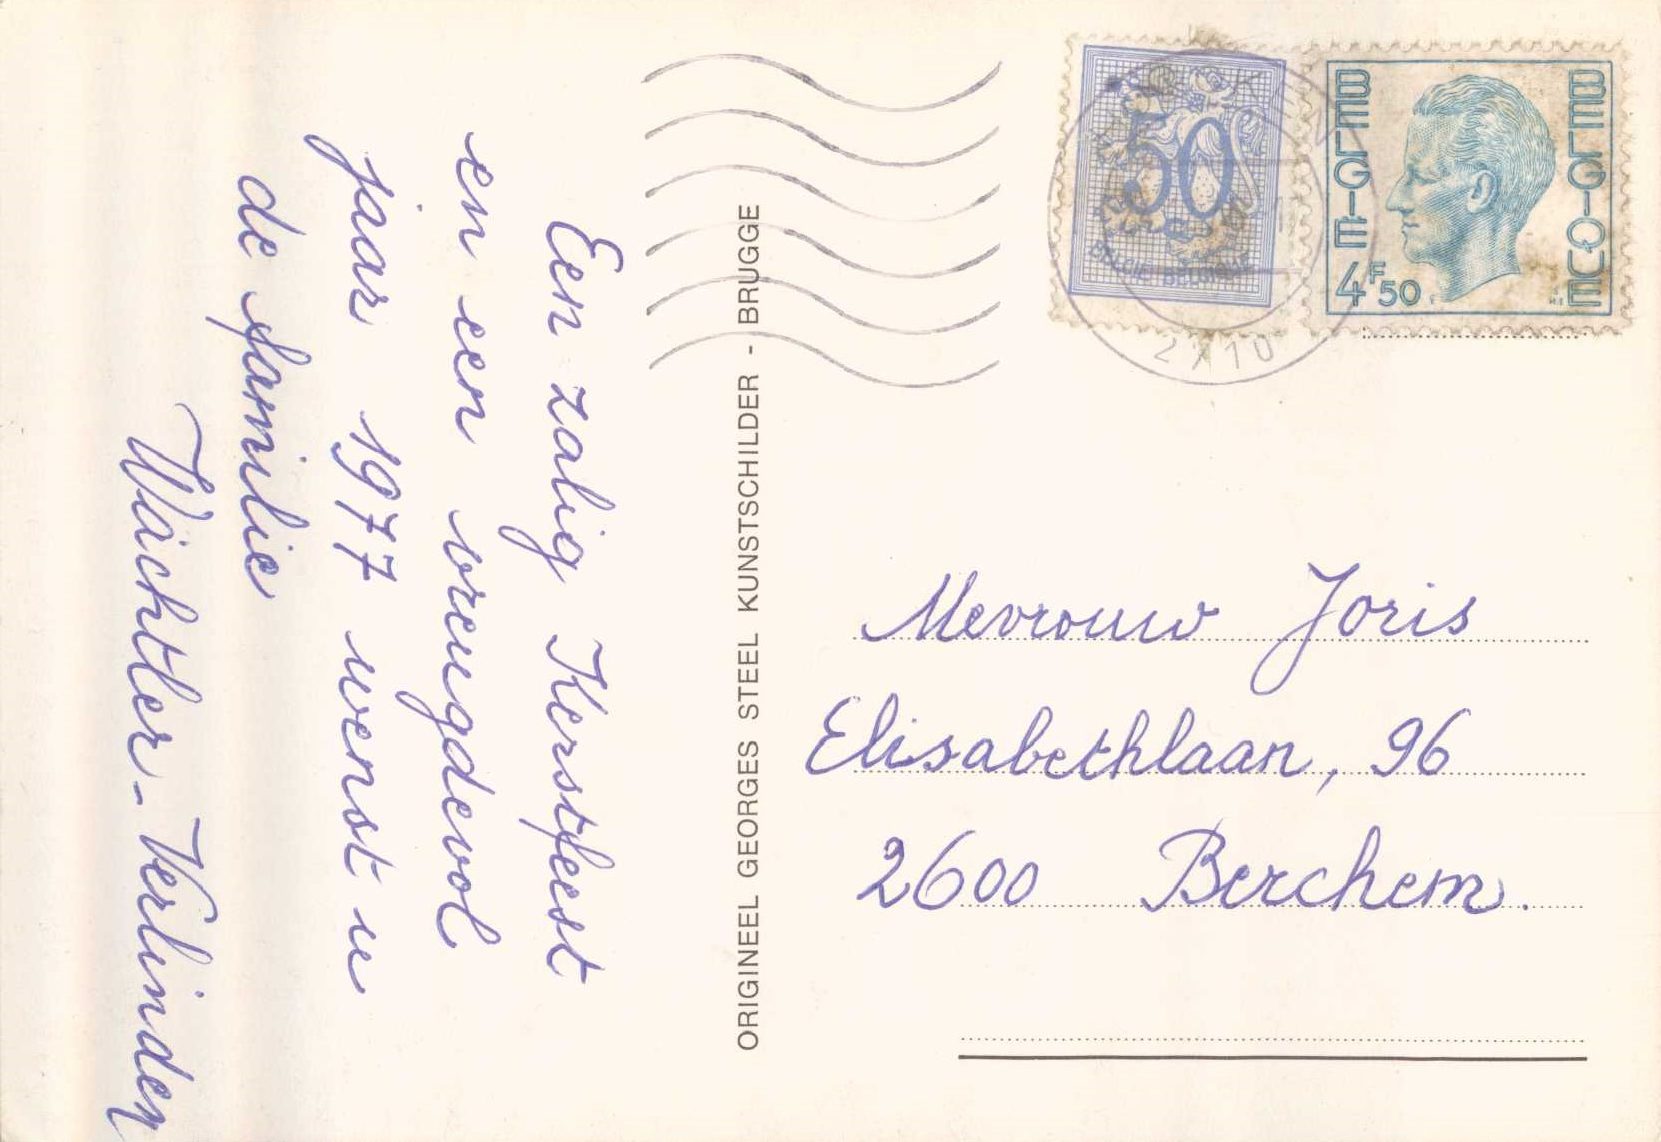 Een zalig Kerstfeest
en een vreugdevol
jaar 1977 wenst u
de familie
Wächtler - Verlinden
ORIGINEEL GEORGES STEEL KUNSTSCHILDER - BRUGGE
50
BELGIE-BELGIQUE
BELGIË
BELGIQUE
4F50
2X10
Mevrouw Joris
Elisabethlaan, 96
2600 Berchem.